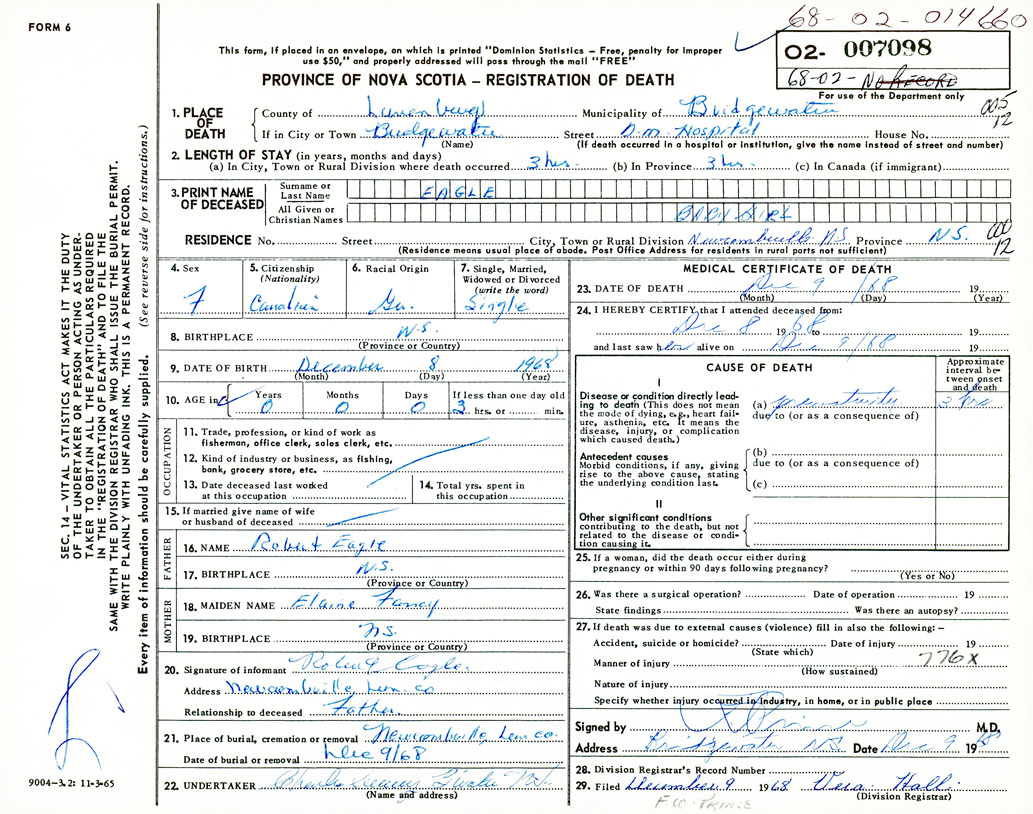 FORM 6
68-02-014660
This form, if placed in an envelope, on which is printed "Dominion Statistics – Free, penalty for improper
use $50," and properly addressed will pass through the mail "FREE"
O2- 007098
68-02- NO RECORD
For use of the Department only
PROVINCE OF NOVA SCOTIA – REGISTRATION OF DEATH
1. PLACE OF DEATH County of Lunenburg Municipality of Bridgewater 005 12
If in City or Town Bridgewater Street D.M. Hospital House No.
(Name) (If death occurred in a hospital or institution, give the name instead of street and number)
2. LENGTH OF STAY (in years, months and days)
(a) In City, Town or Rural Division where death occurred 3 hrs. (b) In Province 3 hrs. (c) In Canada (if immigrant)
3. PRINT NAME OF DECEASED Surname or Last Name EAGLE
All Given or Christian Names BABY GIRL
RESIDENCE No. Street City, Town or Rural Division Newcombville NS Province N.S. 000 12
(Residence means usual place of abode. Post Office Address for residents in rural parts not sufficient)
4. Sex F
5. Citizenship (Nationality) Canadian
6. Racial Origin Ger.
7. Single, Married, Widowed or Divorced (write the word) Single
8. BIRTHPLACE N.S.
(Province or Country)
9. DATE OF BIRTH December 8 1968
(Month) (Day) (Year)
10. AGE in Years 0 Months 0 Days 0 If less than one day old 3 hrs. or min.
OCCUPATION
11. Trade, profession, or kind of work as
fisherman, office clerk, sales clerk, etc.
12. Kind of industry or business, as fishing,
bank, grocery store, etc.
13. Date deceased last worked
at this occupation
14. Total yrs. spent in
this occupation
15. If married give name of wife
or husband of deceased
FATHER
16. NAME Robert Eagle
17. BIRTHPLACE N.S.
(Province or Country)
MOTHER
18. MAIDEN NAME Elaine
19. BIRTHPLACE N.S.
(Province or Country)
20. Signature of informant Robert Eagle
Address Newcombville, Lun. Co
Relationship to deceased Father
21. Place of burial, cremation or removal Newcombville, Lun. Co.
Date of burial or removal Dec 9/68
22. UNDERTAKER Charles
(Name and address)
MEDICAL CERTIFICATE OF DEATH
23. DATE OF DEATH Dec 9 /68 19
(Month) (Day) (Year)
24. I HEREBY CERTIFY that I attended deceased from:
Dec 8 1968 to 19
and last saw her alive on Dec 9/68 19
CAUSE OF DEATH
Approximate interval between onset and death
I
Disease or condition directly leading to death (This does not mean the mode of dying, e.g., heart failure, asthenia, etc. It means the disease, injury, or complication which caused death.)
(a) prematurity 3 hrs
due to (or as a consequence of)
Antecedent causes
Morbid conditions, if any, giving rise to the above cause, stating the underlying condition last.
(b)
due to (or as a consequence of)
(c)
II
Other significant conditions
contributing to the death, but not related to the disease or condition causing it.
25. If a woman, did the death occur either during
pregnancy or within 90 days following pregnancy?
(Yes or No)
26. Was there a surgical operation? Date of operation 19
State findings Was there an autopsy?
27. If death was due to external causes (violence) fill in also the following: –
Accident, suicide or homicide? Date of injury 19
(State which) 776X
Manner of injury
(How sustained)
Nature of injury
Specify whether injury occurred in Industry, in home, or in public place
Signed by F W Prince M.D.
Address Bridgewater NS Date Dec 9 1968
28. Division Registrar's Record Number
29. Filed December 9 1968 Vera Hall
(Division Registrar)
F W. PRINCE
SEC. 14 – VITAL STATISTICS ACT MAKES IT THE DUTY
OF THE UNDERTAKER OR PERSON ACTING AS UNDER-
TAKER TO OBTAIN ALL THE PARTICULARS REQUIRED
IN THE "REGISTRATION OF DEATH" AND TO FILE THE
SAME WITH THE DIVISION REGISTRAR WHO SHALL ISSUE THE BURIAL PERMIT.
WRITE PLAINLY WITH UNFADING INK. THIS IS A PERMANENT RECORD.
Every item of information should be carefully supplied. (See reverse side for instructions.)
9004–3.2: 11-3-65